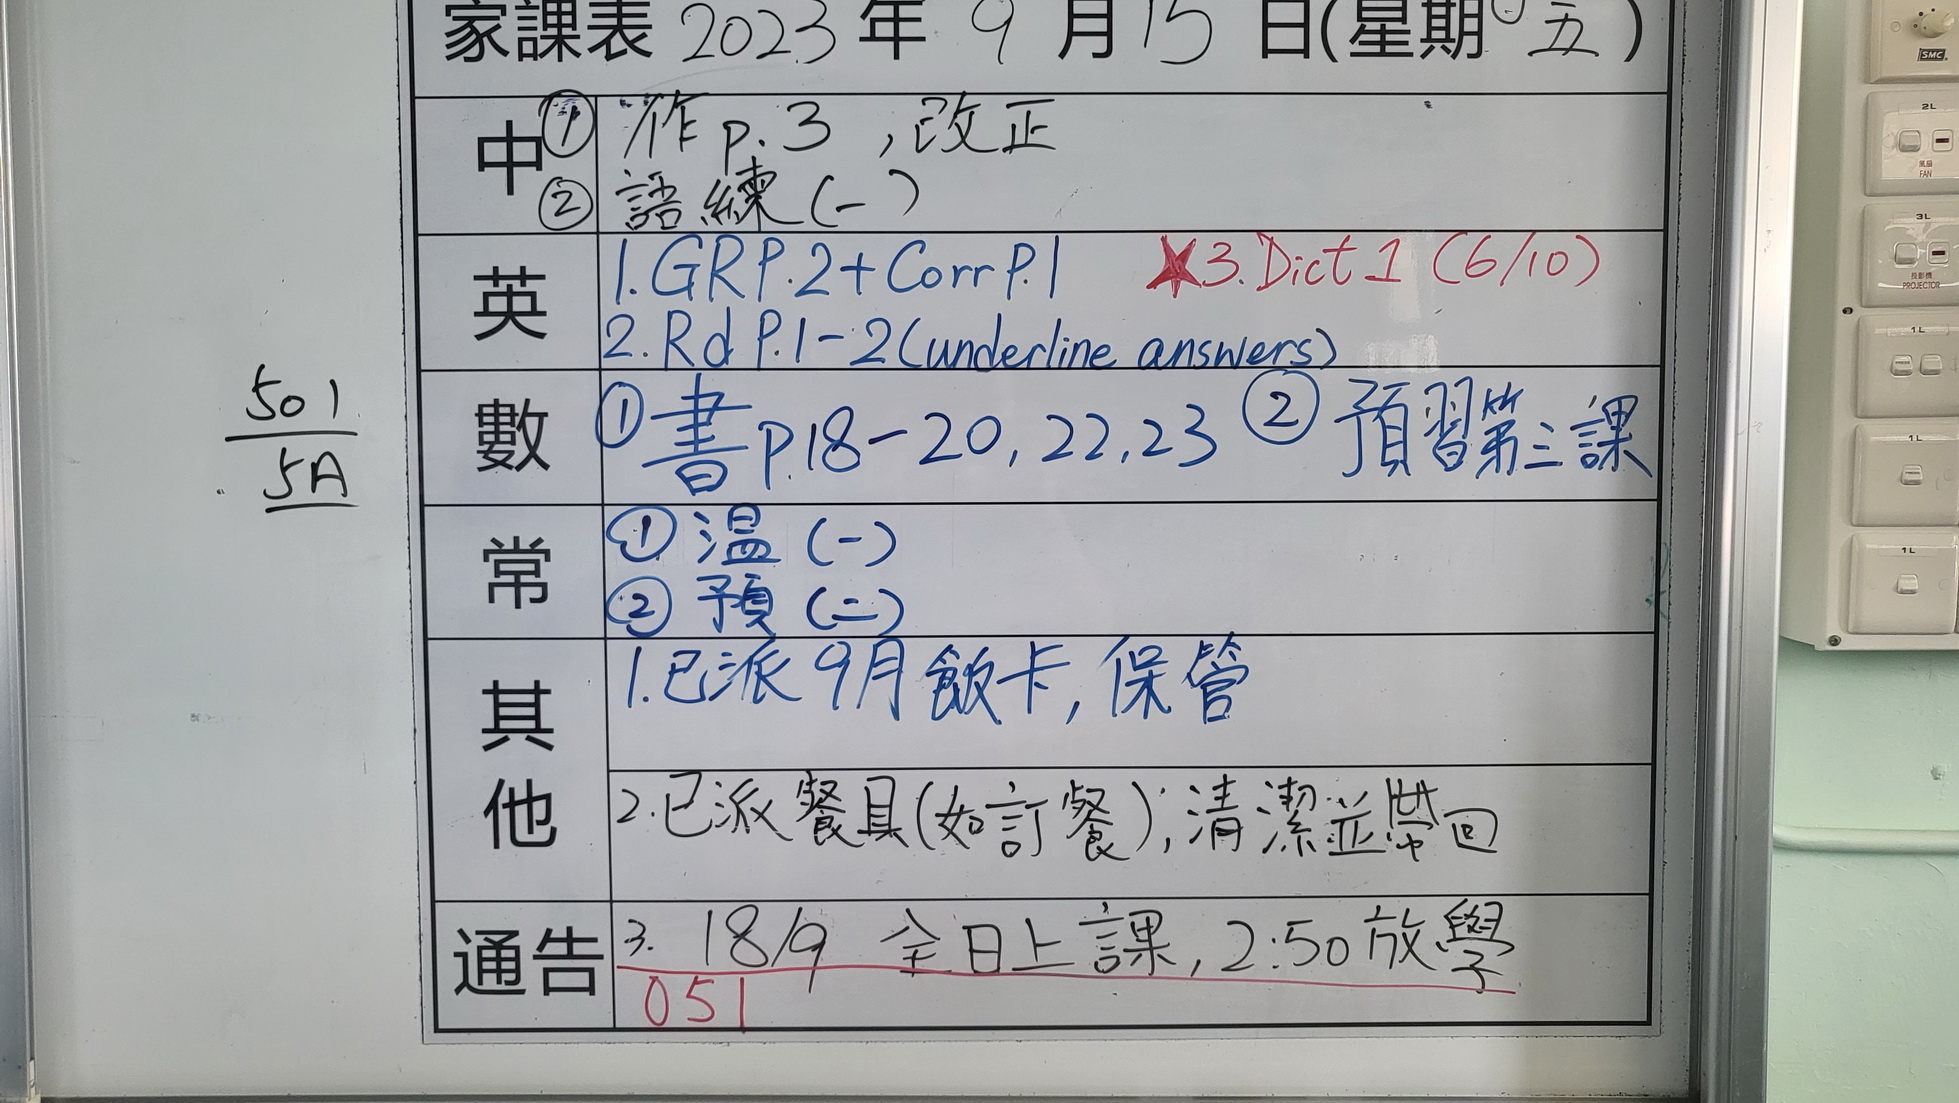 家課表 2023 年 9 月 15 日(星期 五)
中 ① 作 p.3 , 改正
② 語練 (一)
英 1. GR P.2 + Corr P.1 ★3. Dict 1 (6/10)
2. Rd P.1-2 (underline answers)
數 ① 書 p.18-20, 22, 23 ② 預習第三課
常 ① 溫 (一)
② 預 (二)
其他 1. 已派 9月飯卡, 保管
2. 已派餐具(如訂餐), 清潔並帶回
通告 3. 18/9 全日上課, 2:50 放學
051
501
5A
SMC
2L
風扇
FAN
3L
投影機
PROJECTOR
1L
1L
1L